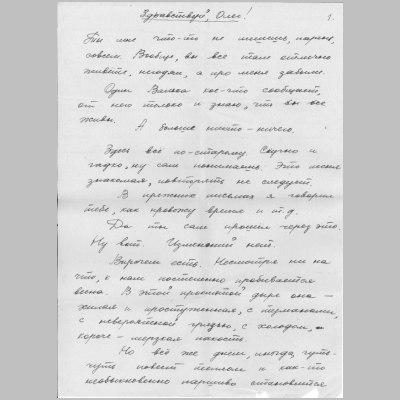 Здравствуй, Олег!
1.
Ты мне что-то не пишешь, парень,
совсем. Вообще, вы все там отлично
живёте, негодяи, а про меня забыли.
Один Валька кое-что сообщает,
от него только и знаю, что вы все
живы.
А больше никто-ничего.
Здесь всё по-старому. Скучно и
гадко, ну сам понимаешь. Это песня
знакомая, повторять не следует.
В прежних письмах я говорил
тебе, как провожу время и т.д.
Да ты сам прошёл через это.
Ну вот. Изменений нет.
Впрочем есть. Несмотря ни на
что, к нам постепенно пробивается
весна. В этой проклятой дыре она –
хилая и простуженная, с туманами,
с невероятной грязью, с холодом,
короче – мерзкая пакость.
Но всё же днём, иногда, чуть-
чуть повеет теплом и как-то
необыкновенно паршиво становится